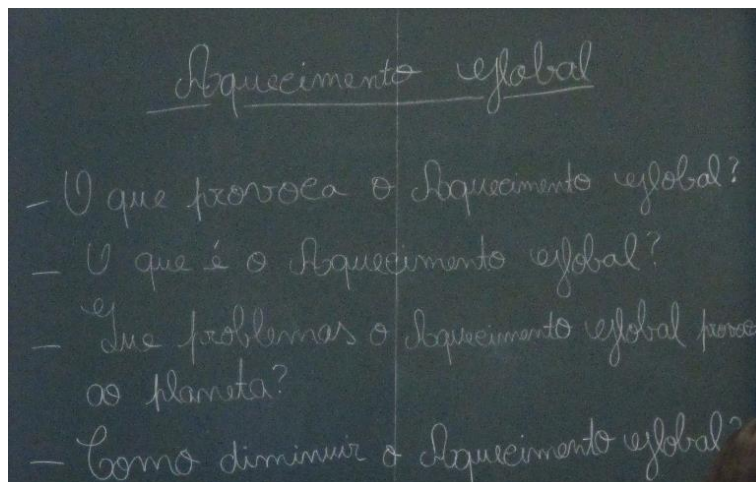 Aquecimento Global
- O que provoca o Aquecimento Global?
- O que é o Aquecimento Global?
- Que problemas o Aquecimento Global provoc
ao planeta?
- Como diminuir o Aquecimento Global?